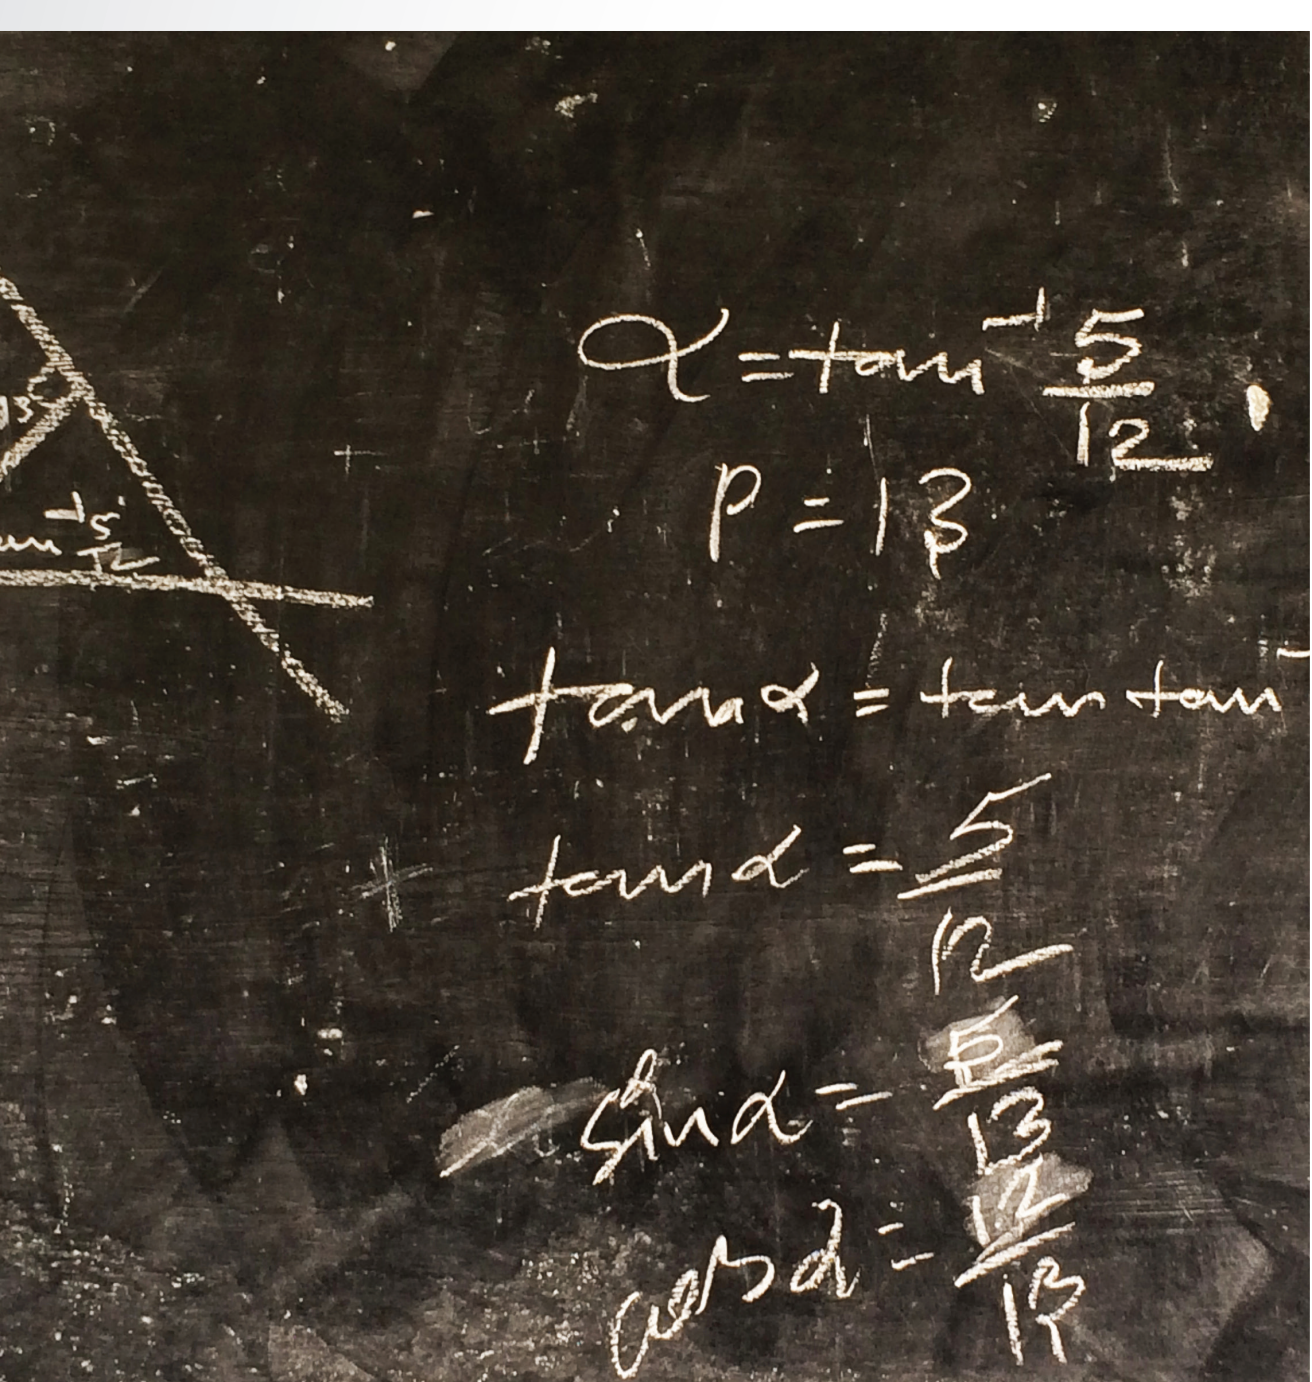 α = tan⁻¹ 5/12
P = 13
13
tan⁻¹ 5/12
tan α = tan tan⁻
tan α = 5/12
sin α = 5/13
cos α = 12/13